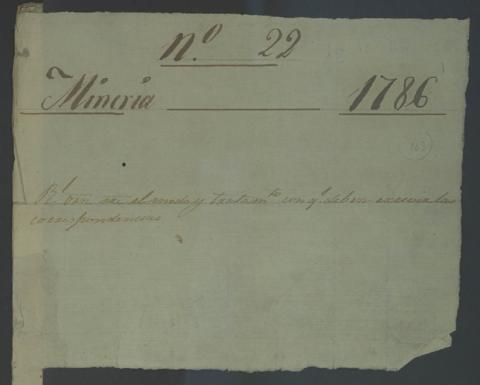 N.º 22
Mineria 1786
163
Rl orn sre el modo y tratamto con q.e deben escrivir las
correspondencias